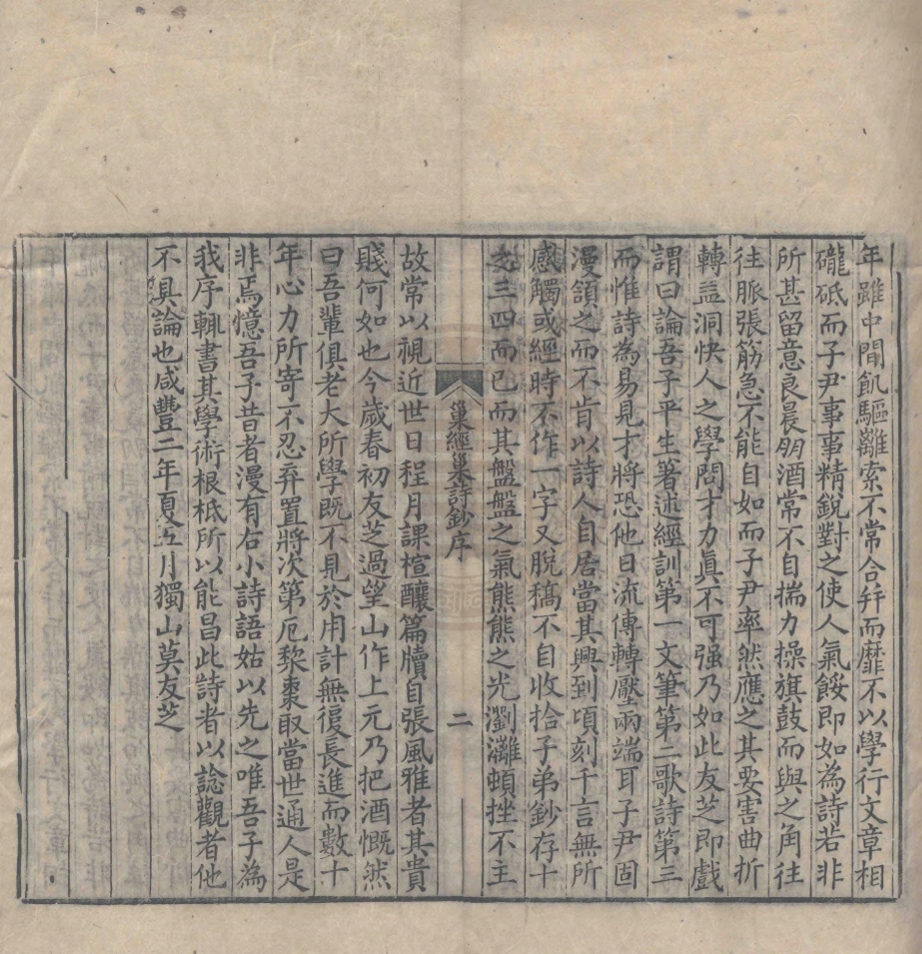 年雖中間飢驅離索不常合幷而靡不以學行文章相
礲砥而子尹事事精銳對之使人氣餒即如為詩若非
所甚留意良晨朋酒常不自揣力操旗鼓而與之角往
往脈張筋急不能自如而子尹率然應之其要害曲折
轉益洞快人之學問才力眞不可强乃如此友芝即戲
謂曰論吾子平生著述經訓第一文筆第二歌詩第三
而惟詩為易見才將恐他日流傳轉壓兩端耳子尹固
漫頷之而不肯以詩人自居當其興到頃刻千言無所
感觸或經時不作一字又脫稿不自收拾子弟鈔存十
之三四而已而其盤盤之氣熊熊之光瀏灕頓挫不主
巢經巢詩鈔序
二
故常以視近世日程月課楦釀篇牘自張風雅者其貴
賤何如也今歲春初友芝過望山作上元乃把酒慨然
曰吾輩俱老大所學既不見於用計無復長進而數十
年心力所寄不忍弃置將次第厄黎棗取當世通人是
非焉憶吾子昔者漫有右小詩語姑以先之唯吾子為
我序輒書其學術根柢所以能昌此詩者以諗觀者他
不具論也咸豐二年夏五月獨山莫友芝